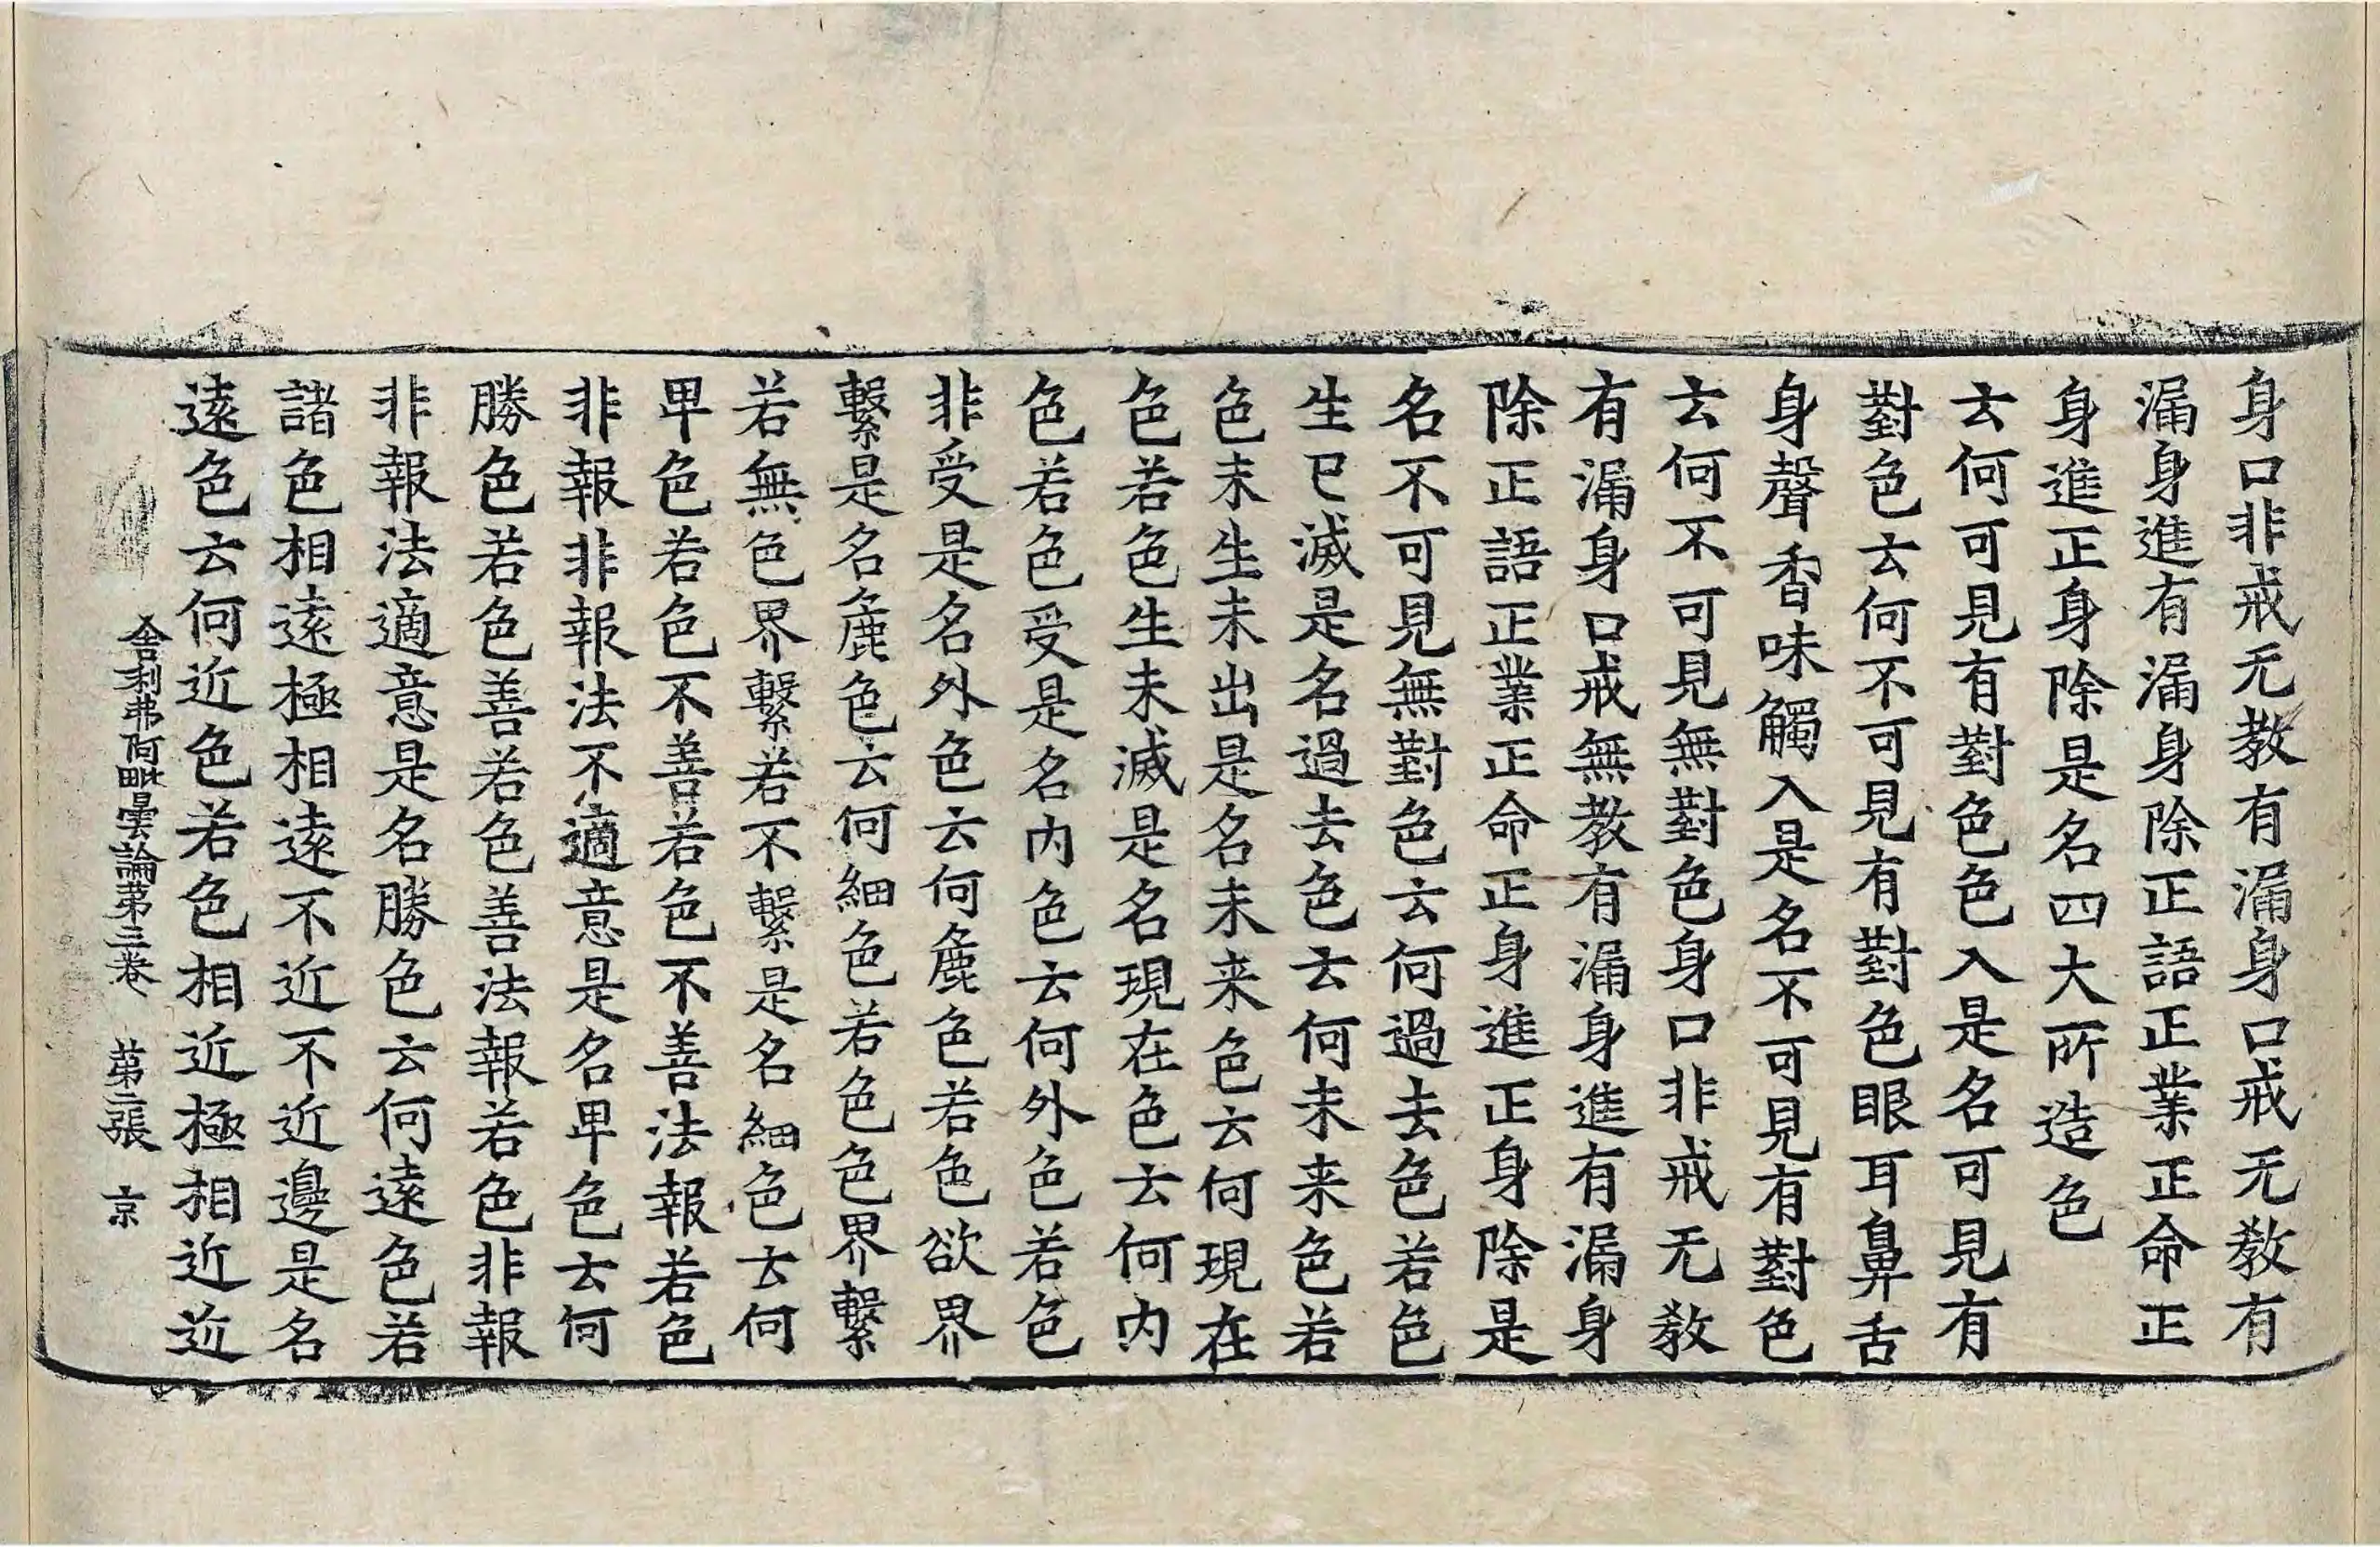 身口非戒无教有漏身口戒无教有
漏身進有漏身除正語正業正命正
身進正身除是名四大所造色
去何可見有對色色入是名可見有
對色去何不可見有對色眼耳鼻舌
身聲香味觸入是名不可見有對色
去何不可見無對色身口非戒无教
有漏身口戒無教有漏身進有漏身
除正語正業正命正身進正身除是
名不可見無對色云何過去色若色
生已滅是名過去色去何未来色若
色未生未出是名未来色云何現在
色若色生未滅是名現在色去何内
色若色受是名内色云何外色若色
非受是名外色云何麁色若色欲界
繫是名麁色云何細色若色色界繫
若無色界繫若不繫是名細色去何
卑色若色不善若色不善法報若色
非報非報法不適意是名卑色去何
勝色若色善若色善法報若色非報
非報法適意是名勝色云何逺色若
諸色相逺極相逺不近不近邊是名
逺色云何近色若色相近極相近近
舍利弗阿毗曇論第三卷 第二張 京